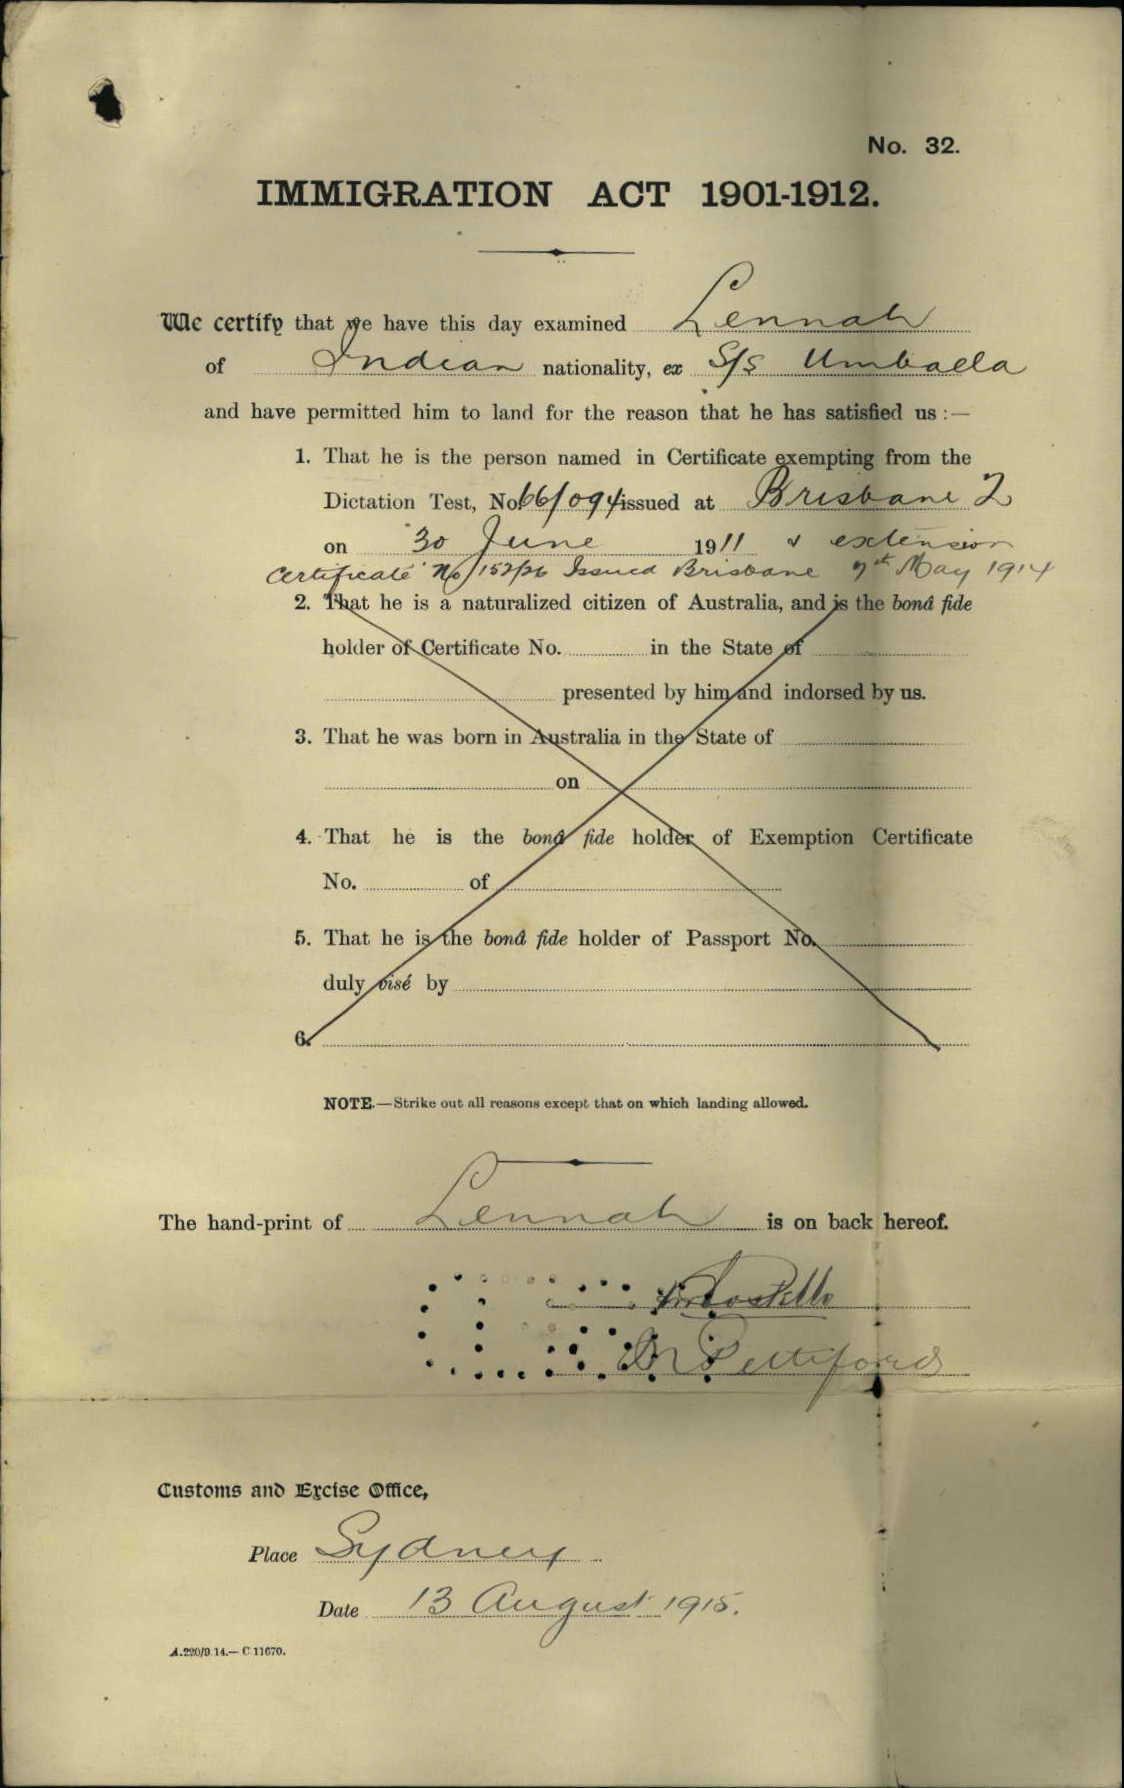 No. 32.
IMMIGRATION ACT 1901-1912.
We certify that we have this day examined Lennah
of Indian nationality, ex S/S Umballa
and have permitted him to land for the reason that he has satisfied us :—
1. That he is the person named in Certificate exempting from the
Dictation Test, No. 66/094 issued at Brisbane Q
on 30 June 1911 & extension
Certificate No/152/26 Issued Brisbane 7th May 1914
2. That he is a naturalized citizen of Australia, and is the bonâ fide
holder of Certificate No. in the State of
presented by him and indorsed by us.
3. That he was born in Australia in the State of
on
4. That he is the bonâ fide holder of Exemption Certificate
No. of
5. That he is the bonâ fide holder of Passport No.
duly visé by
6.
NOTE.—Strike out all reasons except that on which landing allowed.
The hand-print of Lennah is on back hereof.
Costello
Pettiford
Customs and Excise Office,
Place Sydney
Date 13 August 1915.
A.220/9.14.—C.11670.